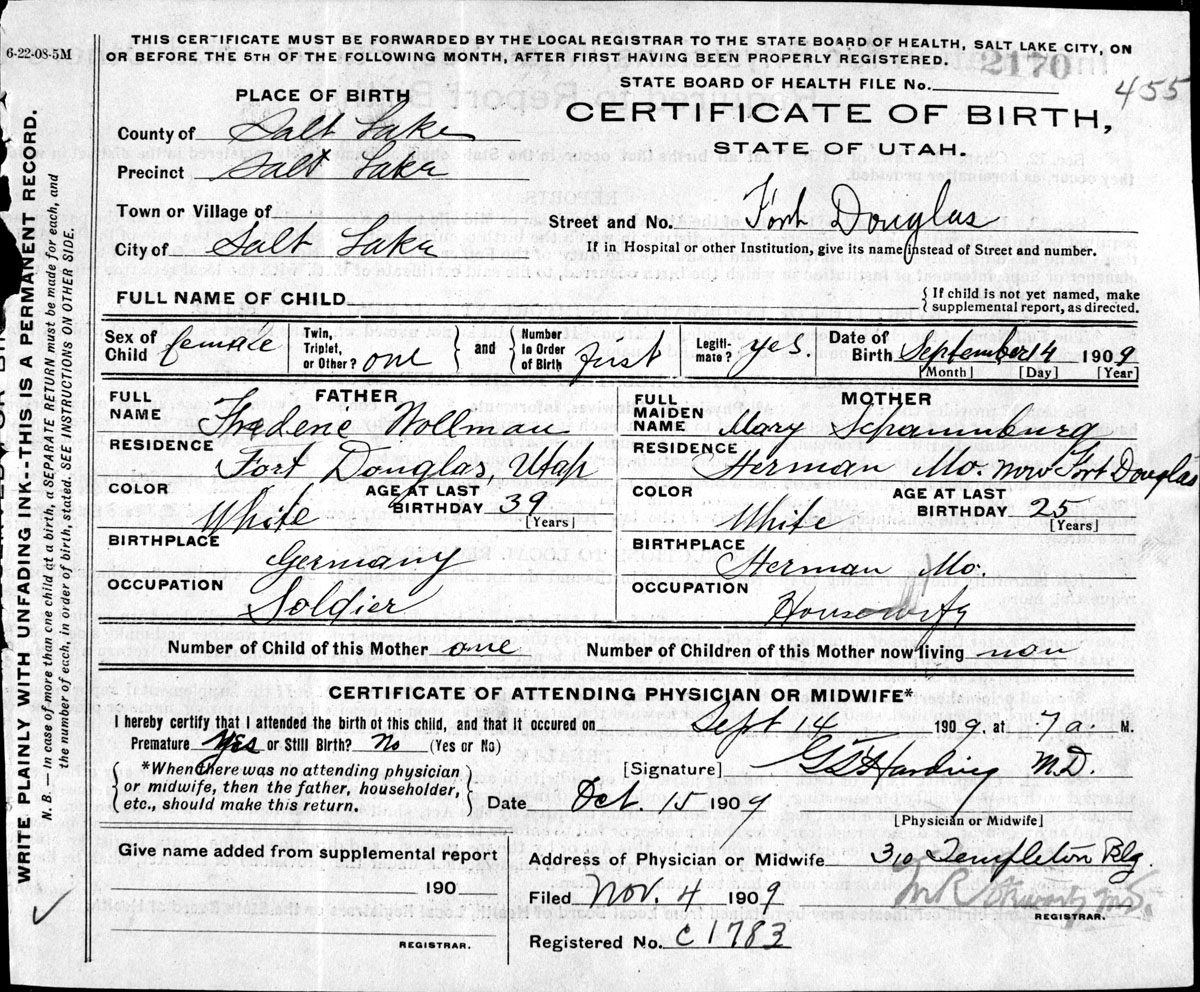 6-22-08-5M
THIS CERTIFICATE MUST BE FORWARDED BY THE LOCAL REGISTRAR TO THE STATE BOARD OF HEALTH, SALT LAKE CITY, ON
OR BEFORE THE 5TH OF THE FOLLOWING MONTH, AFTER FIRST HAVING BEEN PROPERLY REGISTERED.
2170
STATE BOARD OF HEALTH FILE No.
455
PLACE OF BIRTH
CERTIFICATE OF BIRTH,
STATE OF UTAH.
County of Salt Lake
Precinct Salt Lake
Town or Village of
Street and No. Fort Douglas
City of Salt Lake
If in Hospital or other Institution, give its name instead of Street and number.
FULL NAME OF CHILD
{ If child is not yet named, make
supplemental report, as directed.
Sex of Child female
Twin, Triplet, or Other? one
and
Number In Order of Birth first
Legiti-mate? yes.
Date of Birth September 14 1909
[Month] [Day] [Year]
FATHER
FULL NAME Wollman
RESIDENCE Fort Douglas, Utah
COLOR White
AGE AT LAST BIRTHDAY 39
[Years]
BIRTHPLACE Germany
OCCUPATION Soldier
MOTHER
FULL MAIDEN NAME Mary
RESIDENCE Herman Mo. now Fort Douglas
COLOR White
AGE AT LAST BIRTHDAY 25
[Years]
BIRTHPLACE Herman Mo.
OCCUPATION Housewify
Number of Child of this Mother one
Number of Children of this Mother now living non
CERTIFICATE OF ATTENDING PHYSICIAN OR MIDWIFE*
I hereby certify that I attended the birth of this child, and that it occured on Sept 14 1909, at 7 a. M.
Premature yes or Still Birth? No (Yes or No)
{ *When there was no attending physician
or midwife, then the father, householder,
etc., should make this return. }
[Signature] Harding M.D.
Date Oct. 15 1909
[Physician or Midwife]
Give name added from supplemental report
190
REGISTRAR.
Address of Physician or Midwife 310 Templeton Blg.
Filed Nov. 4 1909
M.D.
REGISTRAR.
Registered No. C1783
WRITE PLAINLY WITH UNFADING INK--THIS IS A PERMANENT RECORD.
N. B. — In case of more than one child at a birth, a SEPARATE RETURN must be made for each, and
the number of each, in order of birth, stated. SEE INSTRUCTIONS ON OTHER SIDE.